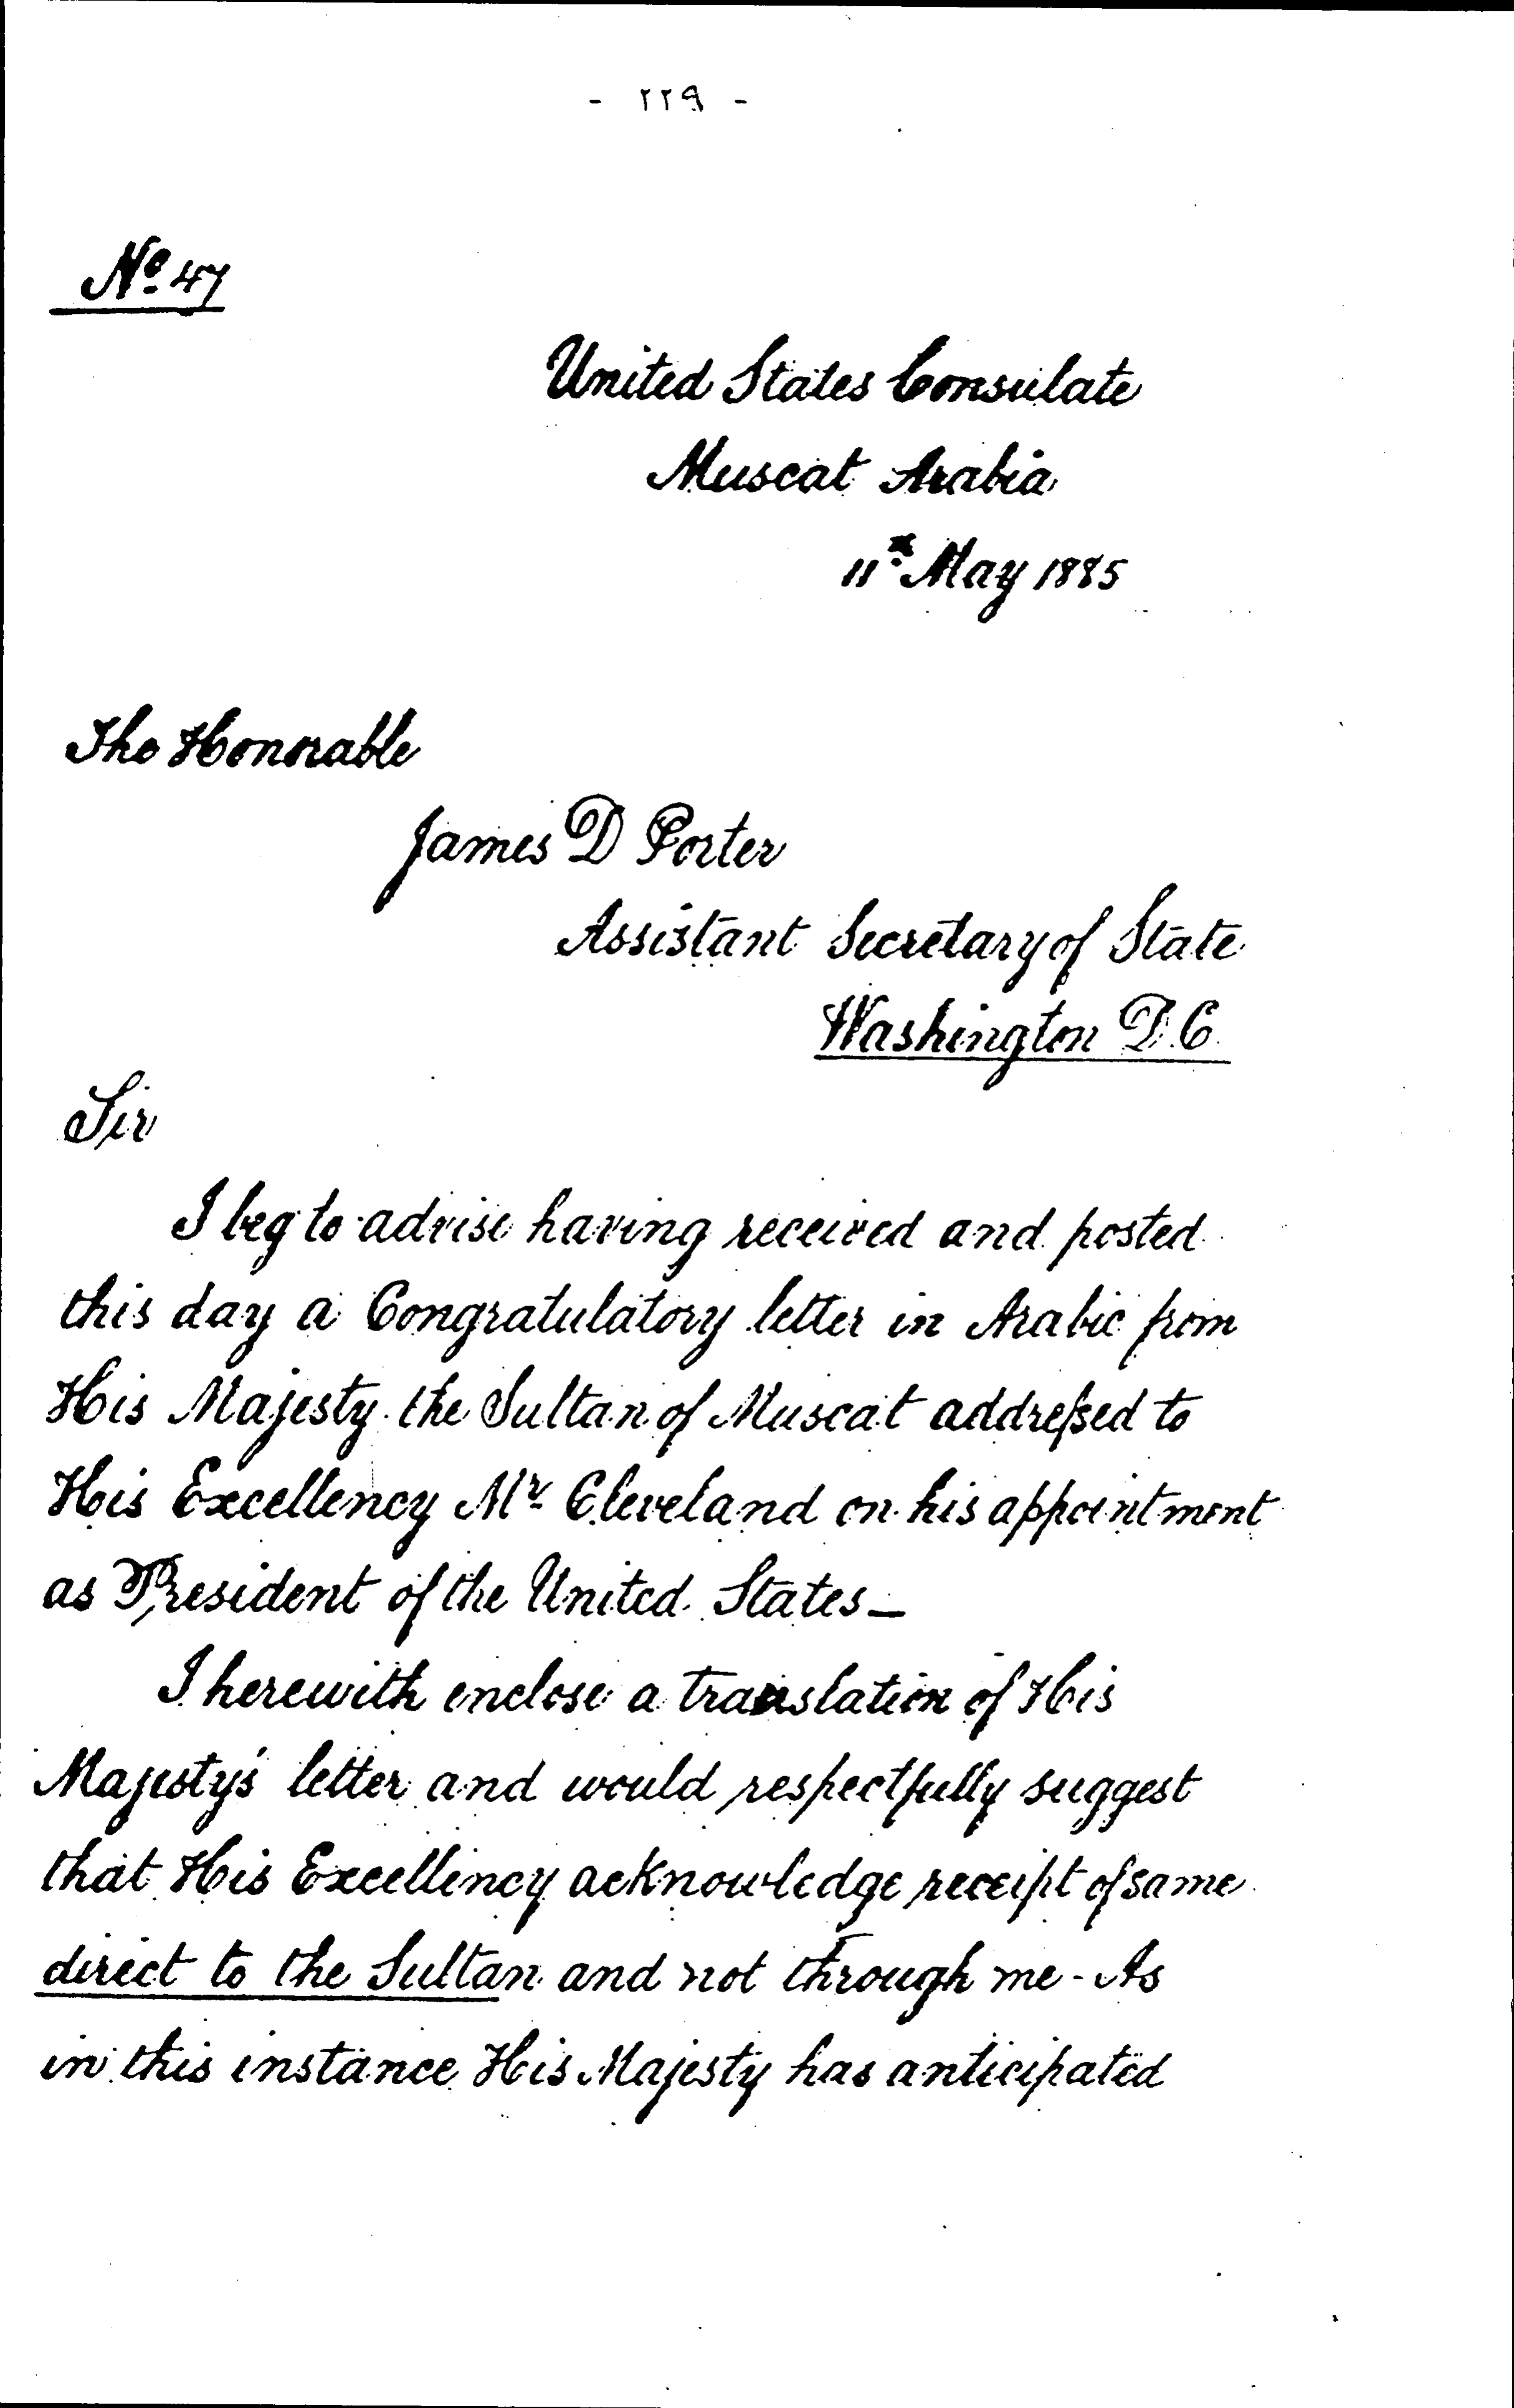 - ٢٢٩ -
No. 47
United States Consulate
Muscat Arabia
11th May 1885
The Honorable
James D Porter
Assistant Secretary of State
Washington D.C.
Sir
I beg to advise having received and posted
this day a Congratulatory letter in Arabic from
His Majesty the Sultan of Muscat addressed to
His Excellency Mr. Cleveland on his appointment
as President of the United States—
I herewith enclose a translation of His
Majesty's letter and would respectfully suggest
that His Excellency acknowledge receipt of same
direct to the Sultan and not through me - As
in this instance His Majesty has anticipated